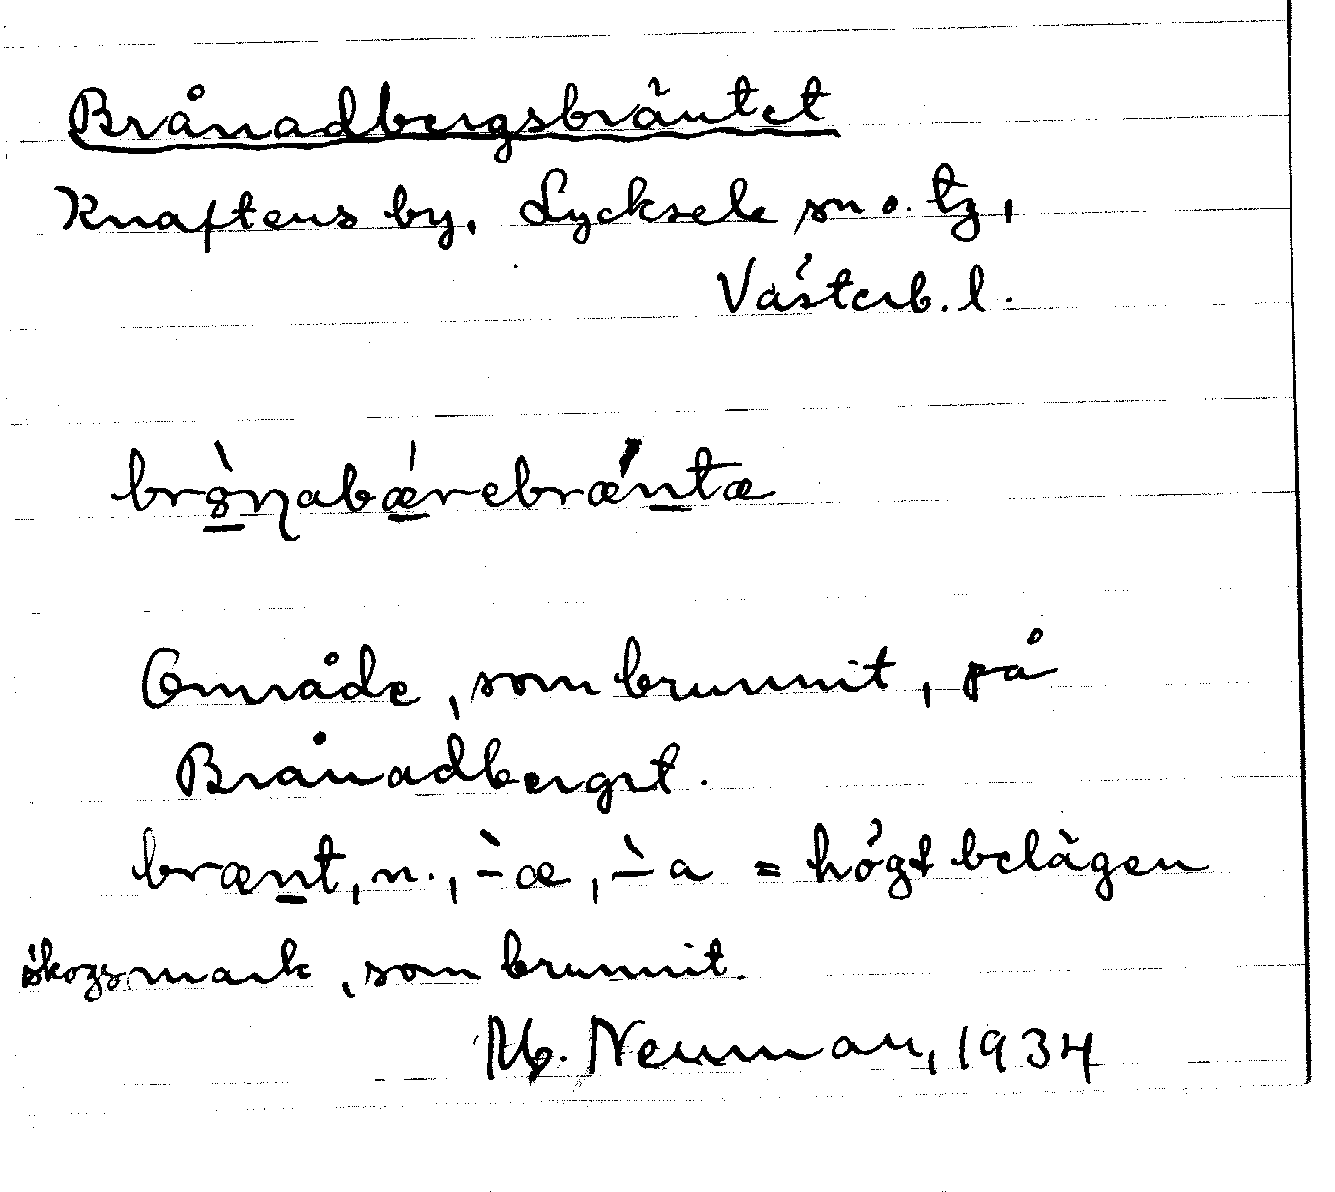 Brånadbergsbräntet
Knaftens by, Lycksele sn o. tg,
Västerb. l.
brò̲ŋabǽ̲rebrǽn̲tæ
Område, som brunnit, på
Brånadberget.
bræn̲t, n., -̀æ, -̀a = högt belägen
skogsmark, som brunnit.
M. Neuman, 1934